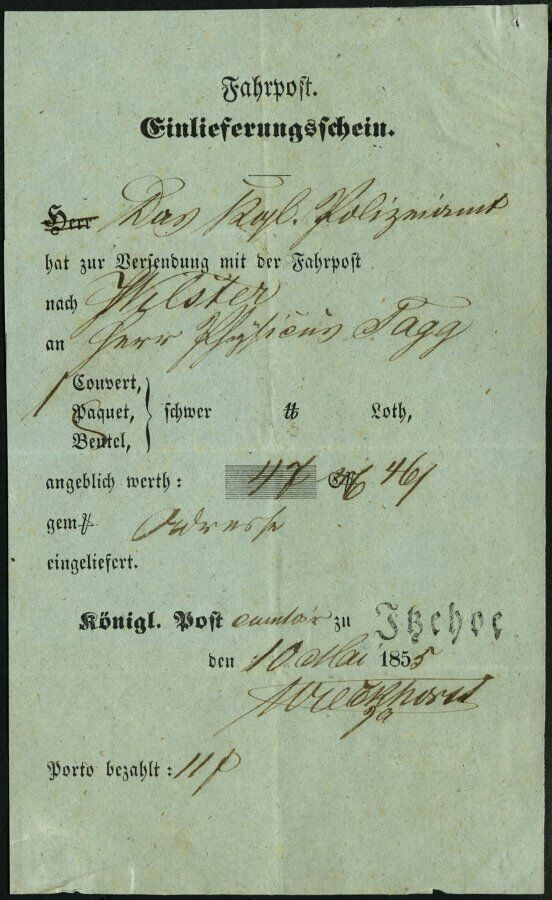 Fahrpost.
Einlieferungsschein.
Herr Das Kgl. Polizeiamt
hat zur Versendung mit der Fahrpost
nach Wilster
an Herr Physicus Tagg
1 Couvert,
Paquet, schwer ℔ Loth,
Beutel,
angeblich werth: 47 46
gem. Adresse
eingeliefert.
Königl. Post comtoir zu Itzehoe
den 10 Mai 1855
Porto bezahlt: 11